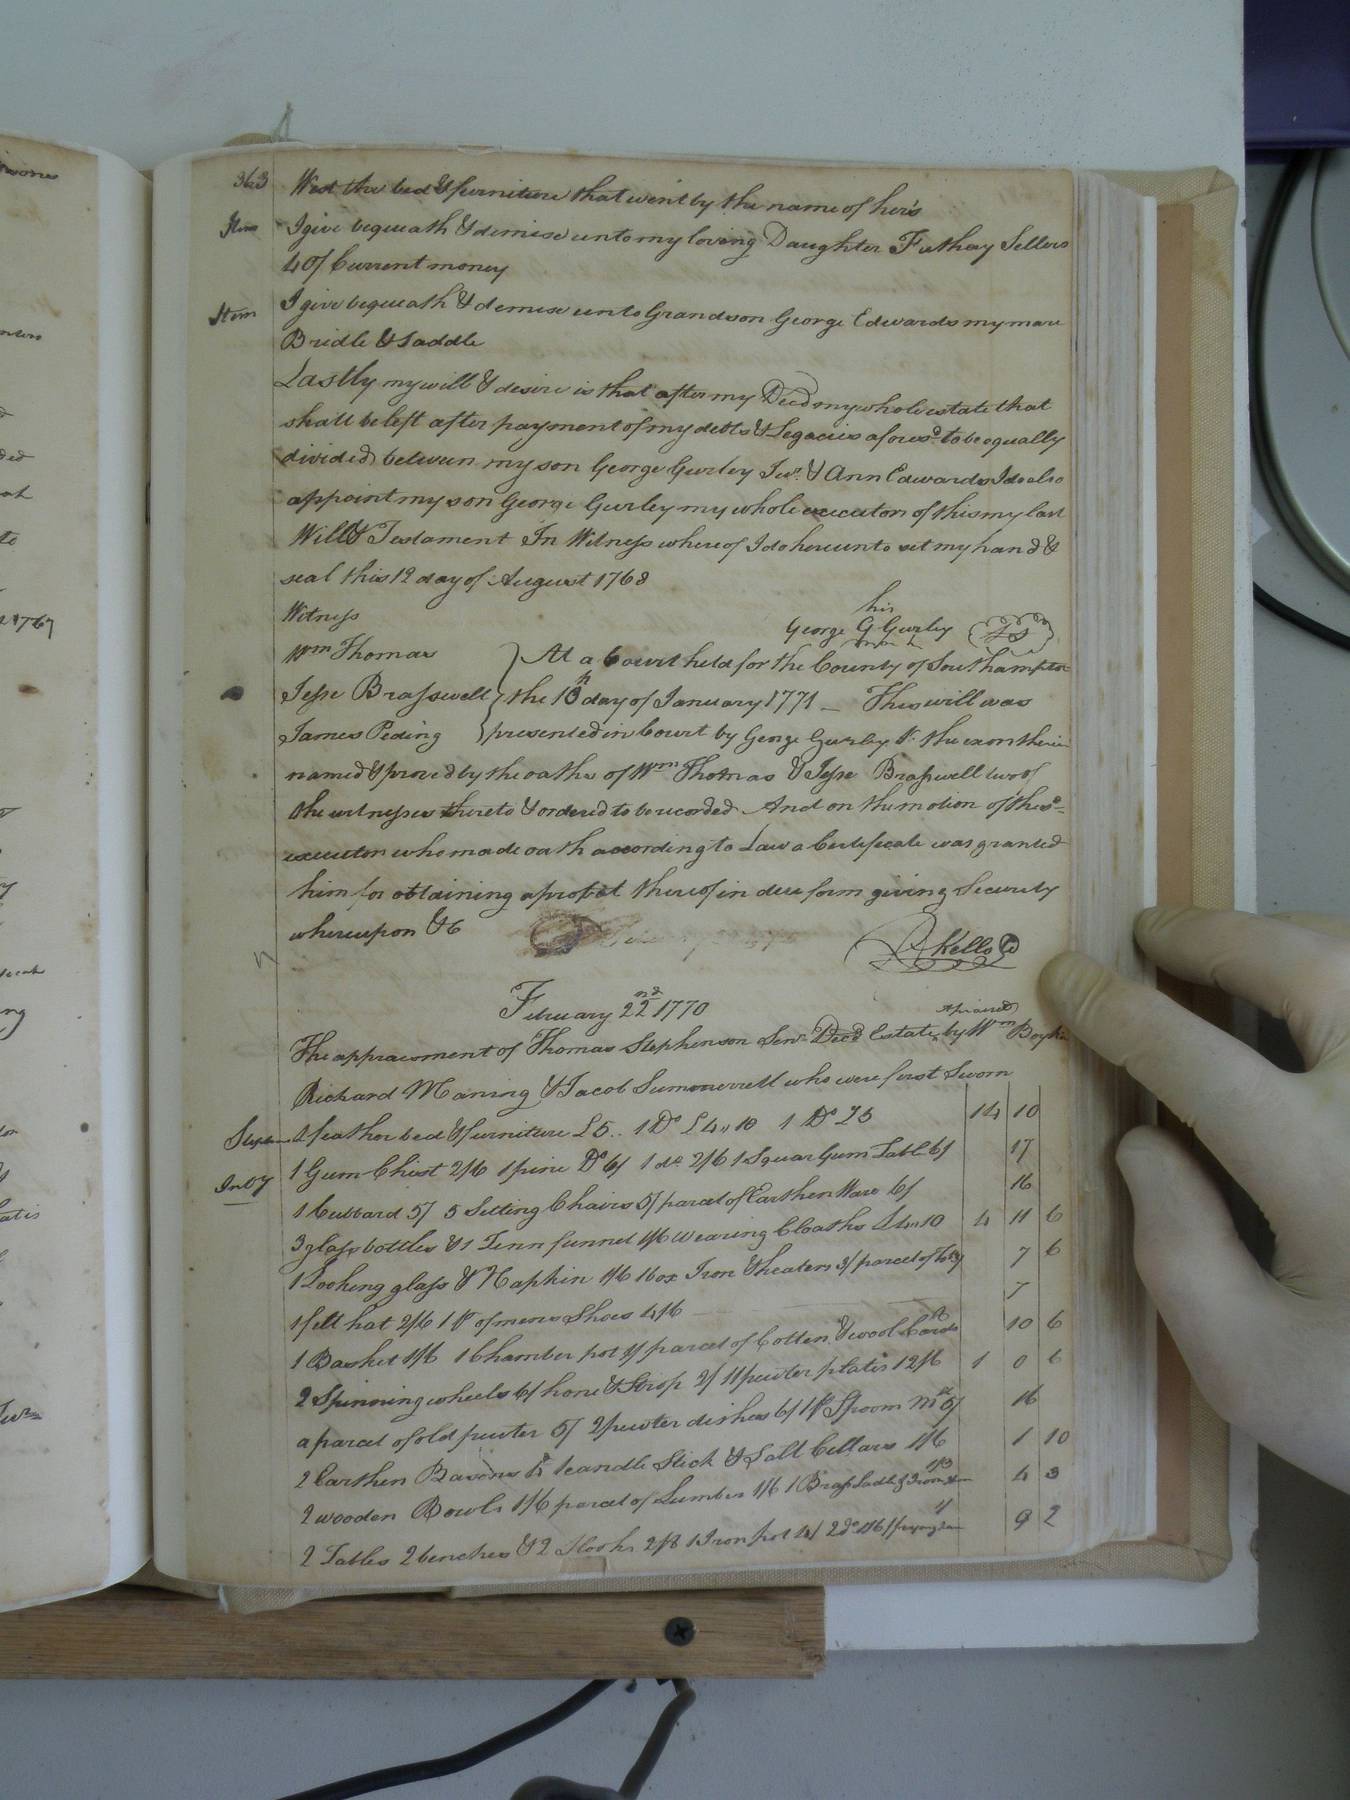 363 West the bed & furniture that went by the name of hers
Item I give bequeath & demise unto my loving Daughter Futhey Sellers
40/ Current money
Item I give bequeath & demise unto Grandson George Edwards my mare
Bridle & Saddle
Lastly my will & desire is that after my Decd my whole estate that
shall be left after payment of my debts & Legacies afores.d to be equally
divided between my son George Gurley Jur. & Ann Edwards I do also
appoint my son George Gurley my whole executor of this my last
Will & Testament In Witness whereof I do hereunto set my hand &
seal this 12 day of August 1768
Witness
his
George G Gurley LS
mark
Wm Thomas
Jesse Brasswell
James Peding
At a Court held for the County of Southampton
the 10th day of January 1771 — This will was
presented in Court by George Gurley Jr. the exor therein
named & proved by the oaths of Wm Thomas & Jesse Braswell two of
the witnesses thereto & ordered to be recorded And on the motion of the sd
executor who made oath according to Law a Certificate was granted
him for obtaining a probat thereof in due form giving Security
whereupon &c
R Kello Cl
February 22nd 1770
The appraisment of Thomas Stephenson Senr. Decd Estate apraised by Wm Boykin
Richard Maning & Jacob Summerrell who were first Sworn
Stephen 1 feather bed & furniture £5.. 1 Do £4,,10 1 Do £5 14 10
Invy 1 Gum Chist 2/6 1 pine Do 6/ 1 do 2/6 1 Squar Gum Table 6/ 17
1 Cubbard 5/ 5 Setting Chairs 5/ parcel of Earthen Ware 6/ 16
3 glass bottles & 1 Tenn funnel 1/6 wearing Cloaths £4,,10 4 11 6
1 Looking glass & Napkin 1/6 1 box Iron & heaters 3/ parcel of 7 6
1 felt hat 2/6 1 pr of mens Shoes 4/6 7
1 Basket 1/6 1 Chamber pot 1/ parcel of Cotten & wool Cards 10 6
2 Spinning wheels 6/ hone & Strop 2/ 11 pewter plates 12/6 1 0 6
a parcel of old pewter 5/ 2 pewter dishes 6/ 1 pr Spoom Md 5/ 16
2 Earthen Basons 1 candle Stick & Salt Cellars 1/6 1 10
2 wooden Bowls 1/6 parcel of Lumber 1/6 1 Brass Ladle & Iron 1/3 4 3
2 Tables 2 benches & 2 Hooks 2/8 1 Iron pot 4/ 2 do 1/6 1 frying pan 1/ 9 2